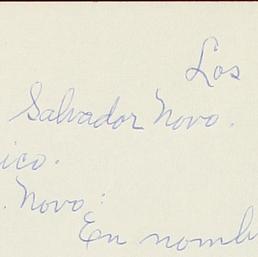 Los
Salvador Novo.
ico.
. Novo:
En nomb